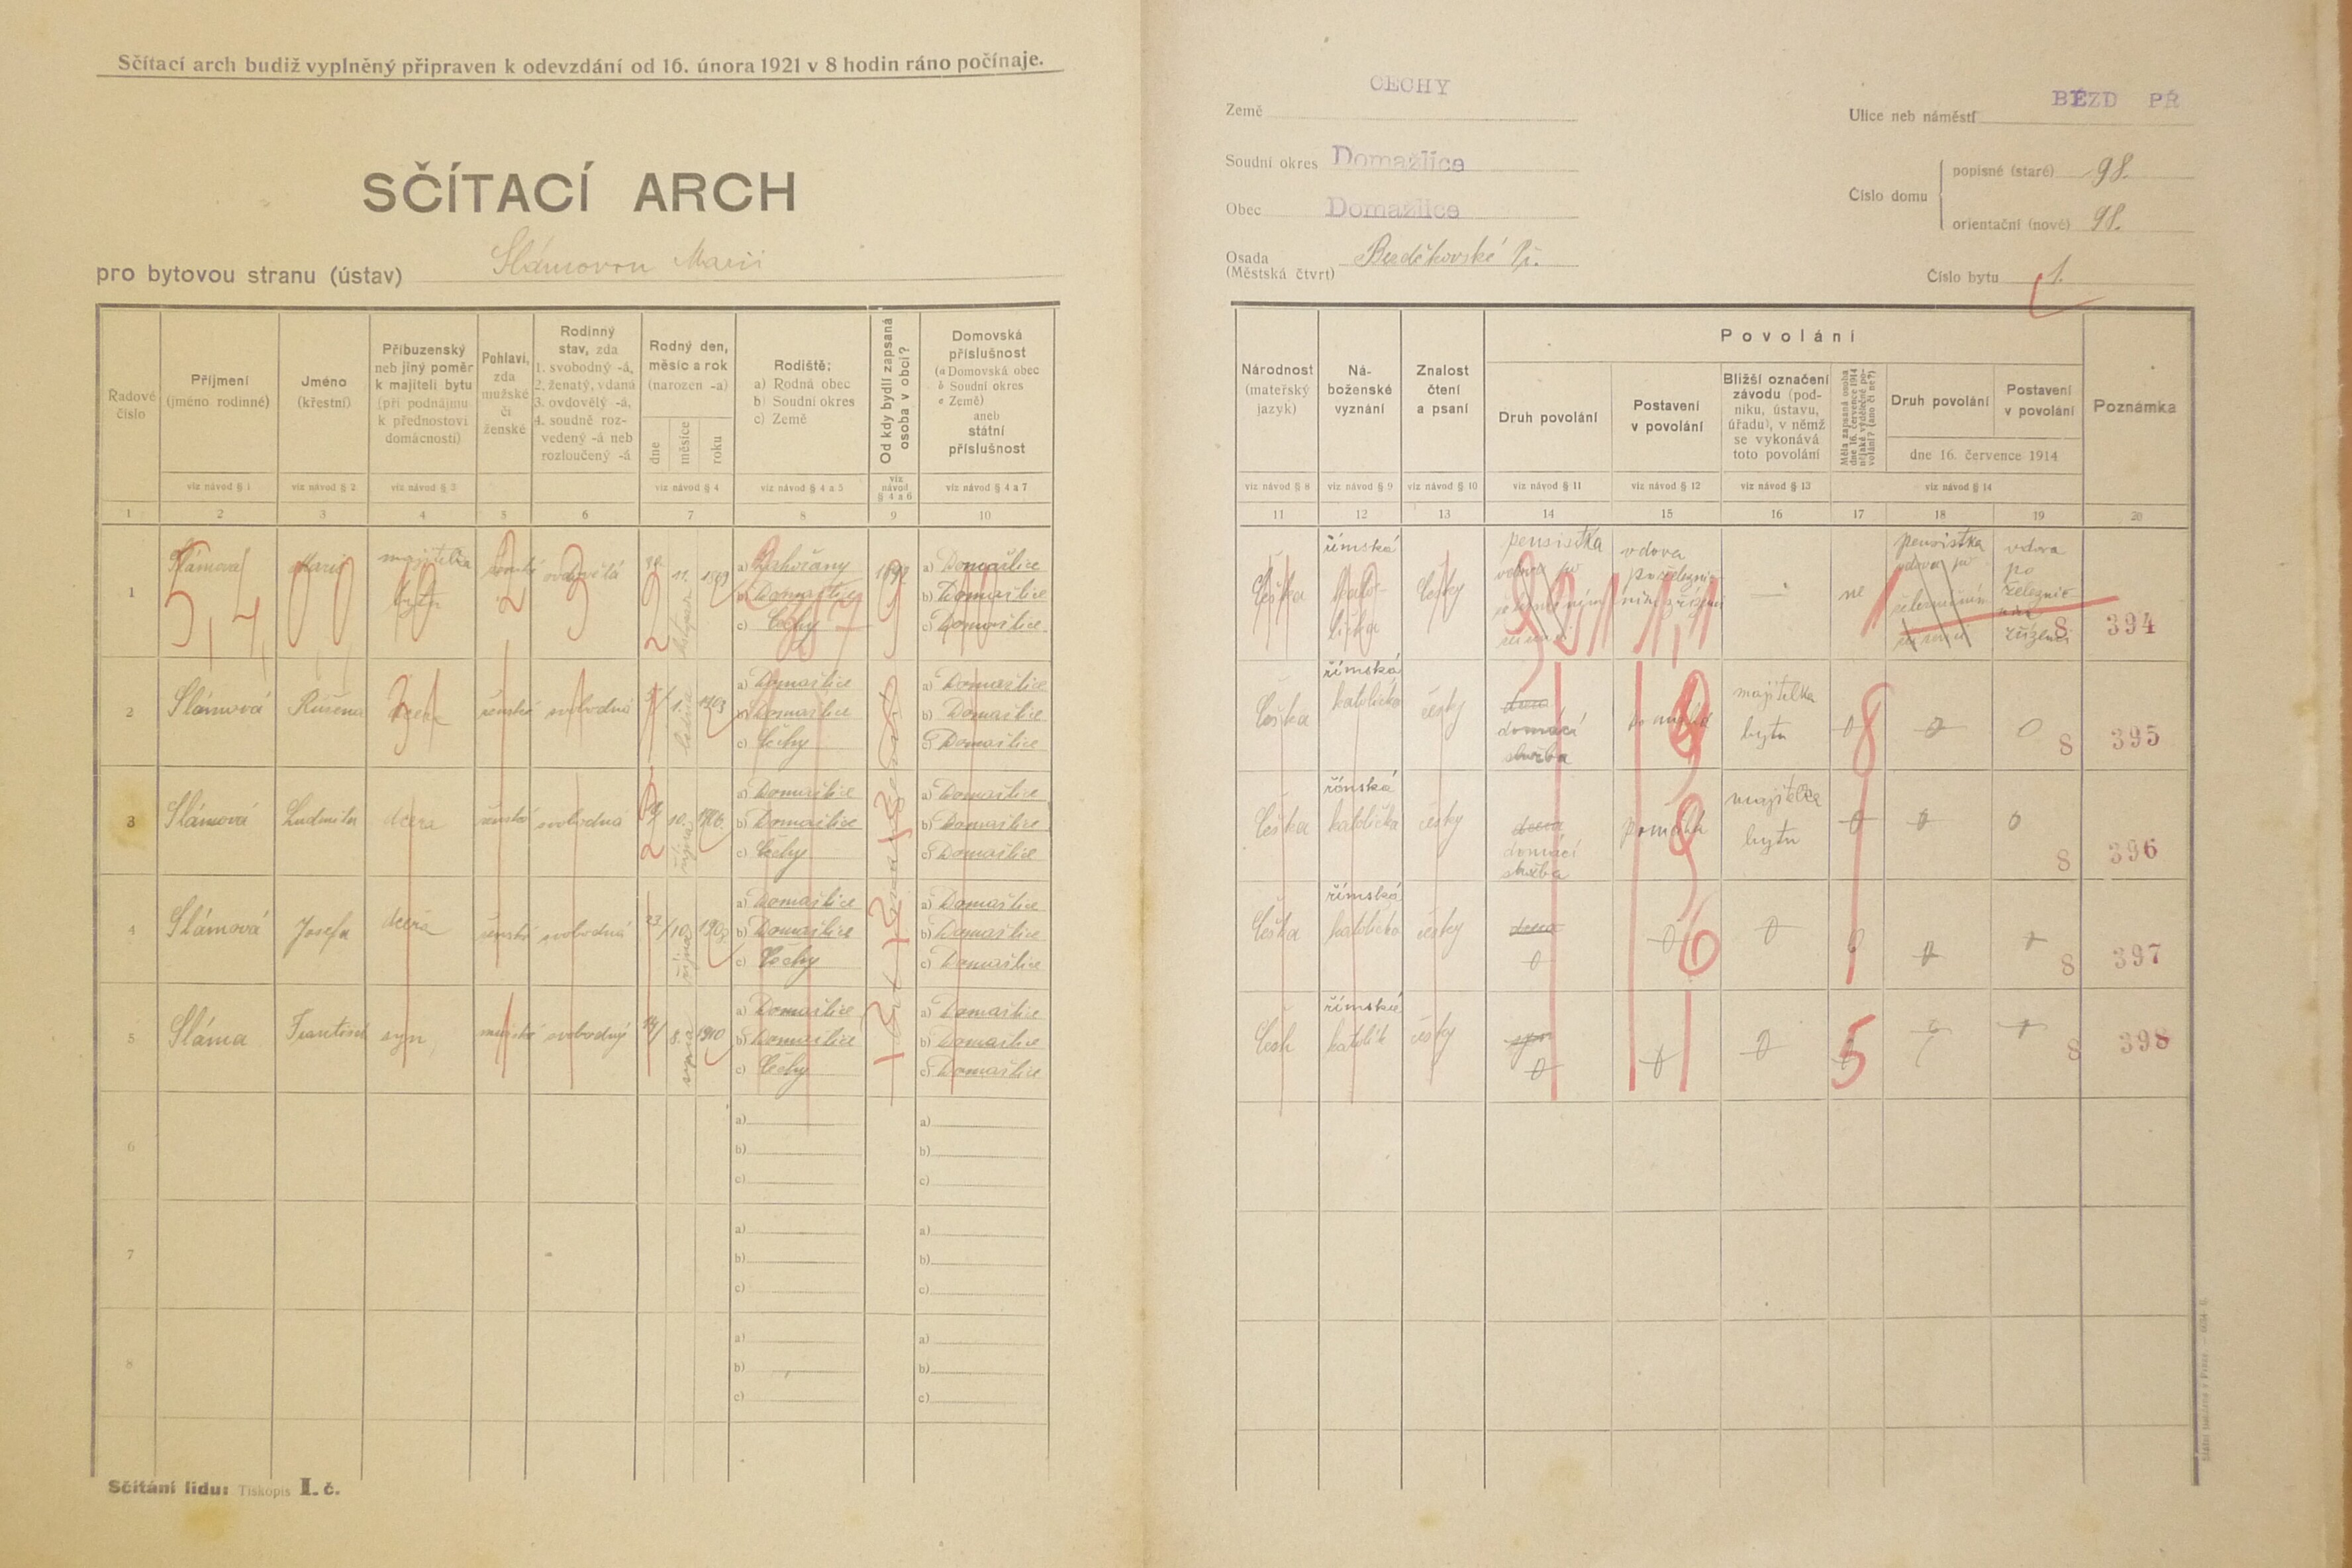 Sčítací arch budiž vyplněný připraven k odevzdání od 16. února 1921 v 8 hodin ráno počínaje.
SČÍTACÍ ARCH
pro bytovou stranu (ústav) Slámovou Marii
Řadové číslo
Příjmení (jméno rodinné)
Jméno (křestní)
Příbuzenský neb jiný poměr k majiteli bytu (při podnájmu k přednostovi domácnosti)
Pohlaví, zda mužské či ženské
Rodinný stav, zda 1. svobodný -á, 2. ženatý, vdaná 3. ovdovělý -á, 4. soudně rozvedený -á neb rozloučený -á
Rodný den, měsíc a rok (narozen -a)
dne měsíce roku
Rodiště:
a) Rodná obec
b) Soudní okres
c) Země
Od kdy bydlí zapsaná osoba v obci?
Domovská příslušnost
(a Domovská obec
b Soudní okres
c Země)
aneb státní příslušnost
viz návod § 1 viz návod § 2 viz návod § 3 viz návod § 4 viz návod § 4 a 5 viz návod § 4 a 6 viz návod § 4 a 7
1 2 3 4 5 6 7 8 9 10
1 Slámová Marie majitelka bytu ženské ovdovělá 11. listopadu
a) b) Domažlice c) Čechy
a) Domažlice b) Domažlice c) Domažlice
2 Slámová Růžena dcera ženské svobodná 1. ledna 1903
a) Domažlice b) Domažlice c) Čechy
a) Domažlice b) Domažlice c) Domažlice
3 Slámová Ludmila dcera ženské svobodná 10. října 1906
a) Domažlice b) Domažlice c) Čechy
a) Domažlice b) Domažlice c) Domažlice
4 Slámová Josefa dcera ženské svobodná 23/ 10. října
a) Domažlice b) Domažlice c) Čechy
a) Domažlice b) Domažlice c) Domažlice
5 Sláma František syn mužské svobodný 8. srpna 1910
a) Domažlice b) Domažlice c) Čechy
a) Domažlice b) Domažlice c) Domažlice
6 a) b) c) a) b) c)
7 a) b) c) a) b) c)
8 a) b) c) a) b) c)
Sčítání lidu: Tiskopis I. č.
Země ČECHY
Soudní okres Domažlice
Obec Domažlice
Osada (Městská čtvrt) Bezděkovské Př.
Ulice neb náměstí BEZD PŘ
Číslo domu
popisné (staré) 98.
orientační (nové) 98.
Číslo bytu 1.
Národnost (mateřský jazyk)
Náboženské vyznání
Znalost čtení a psaní
Povolání
Druh povolání
Postavení v povolání
Bližší označení závodu (podniku, ústavu, úřadu), v němž se vykonává toto povolání
Měla zapsaná osoba dne 16. července 1914 nějaké výdělečné povolání? (ano či ne?)
Druh povolání
Postavení v povolání
dne 16. července 1914
Poznámka
viz návod § 8 viz návod § 9 viz návod § 10 viz návod § 11 viz návod § 12 viz návod § 13 viz návod § 14
11 12 13 14 15 16 17 18 19 20
Češka římská katolička česky pensistka vdova ne pensistka vdova po železnič zřízenci 8 394
Češka římská katolička česky dcera domácí služba majitelka bytu 0 0 0 8 395
Češka římská katolička česky dcera domácí služba majitelka bytu 0 0 0 8 396
Češka římská katolička česky dcera 0 0 0 0 0 8 397
Čech římské katolík česky syn 0 0 0 8 398